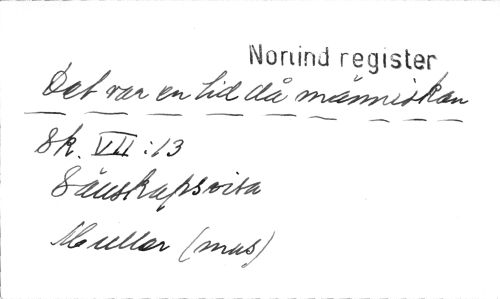 Norlind register
Det var en tid då människan
Sk. VII:13
Sällskapsvisa
Müller (mus)